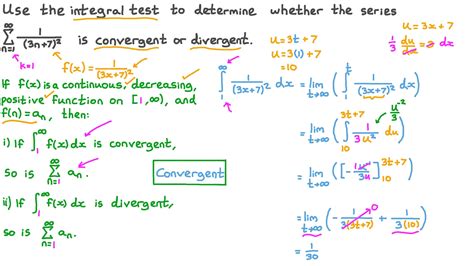 Use the integral test to determine whether the series
∑_{n=1}^{∞} 1/(3n+7)² is convergent or divergent.
k=1
f(x)=1/(3x+7)²
If f(x) is a continuous, decreasing,
positive function on [1,∞), and
f(n)=aₙ, then:
i) If ∫₁^∞ f(x)dx is convergent,
so is ∑_{n=1}^{∞} aₙ.
ii) If ∫₁^∞ f(x)dx is divergent,
so is ∑_{n=1}^{∞} aₙ.
Convergent
u=3t+7
u=3(1)+7
=10
u=3x+7
1/3 du/dx=3 dx
∫₁^∞ 1/(3x+7)² dx = lim_{t→∞} (∫₁^t 1/(3x+7)² dx)
u⁻²/3
= lim_{t→∞} (∫₁₀^{3t+7} 1/3u² du)
= lim_{t→∞} ([-1/3u]₁₀^{3t+7})
= lim_{t→∞} (-1/3(3t+7) + 1/3(10))
0
= 1/30